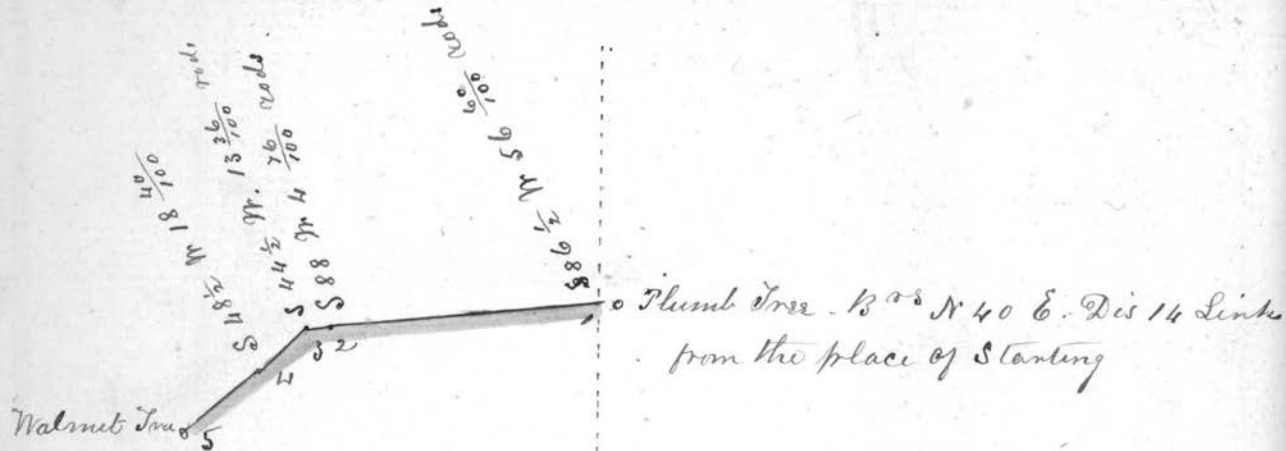 S 48 1/2 W 18 40/100
S 44 1/2 W. 13 36/100 rods
S 88 W 4 76/100 rods
S 86 1/2 W 56 60/100 rods
Plumb Tree - Brs N 40 E. Dis 14 Links
from the place of Starting
1
2
3
4
Walnut Tree 5